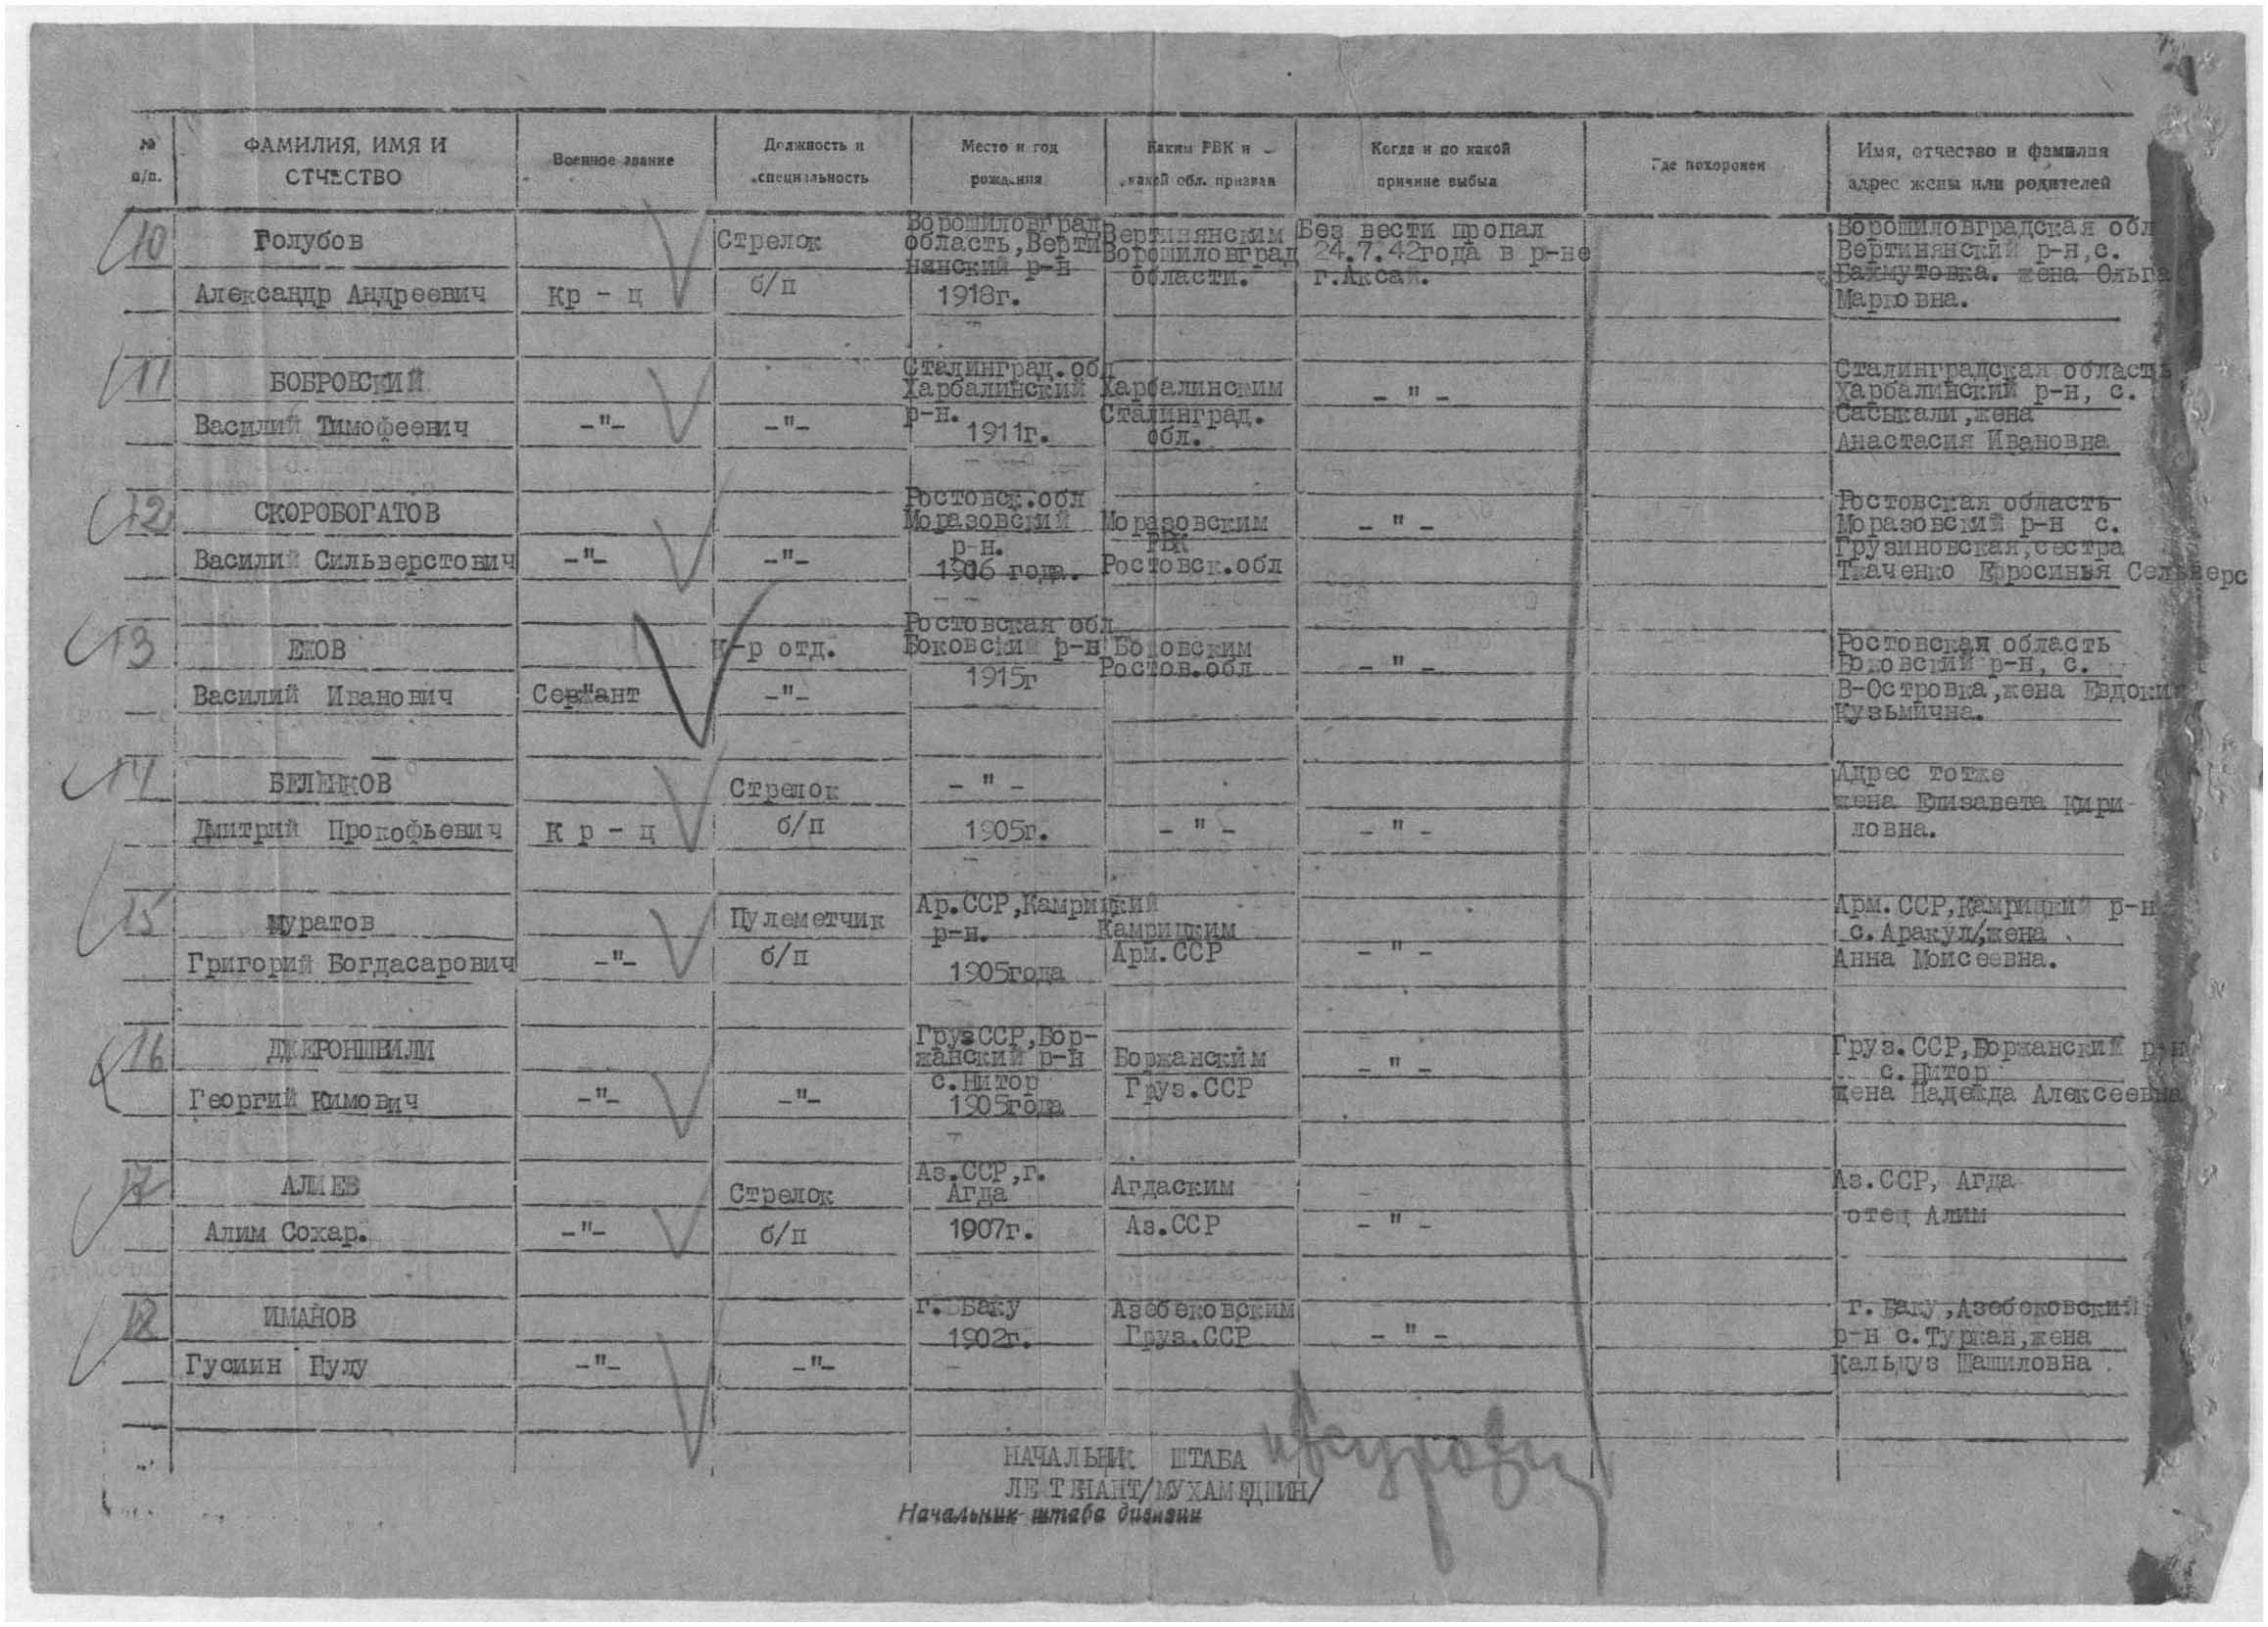 № п/п.
ФАМИЛИЯ, ИМЯ И ОТЧЕСТВО
Военное звание
Должность и специальность
Место и год рождения
Каким РВК и какой обл. призван
Когда и по какой причине выбыл
Где похоронен
Имя, отчество и фамилия адрес жены или родителей
10
Голубов
Александр Андреевич
Кр - ц
Стрелок
б/п
Ворошиловград
область, Верти
нянский р-н
1918г.
Вертинянским
Ворошиловград
области.
Без вести пропал
24.7.42года в р-не
г.Аксай.
Ворошиловградская обл
Вертинянский р-н,с.
Бахмутовка. жена Ольга
Марковна.
11
БОБРОВСКИЙ
Василий Тимофеевич
-"-
-"-
Сталинград.обл
Харбалинский
р-н.
1911г.
Харбалинским
Сталинград.
обл.
- " -
Сталинградская область
Харбалинский р-н, с.
Сасыкали,жена
Анастасия Ивановна
12
СКОРОБОГАТОВ
Василий Сильверстович
-"-
-"-
Ростовск.обл
Моразовский
р-н.
1906 года.
Моразовским
РВК
Ростовск.обл
- " -
Ростовская область
Моразовский р-н с.
Грузиновская,сестра
Ткаченко Ефросинья Сельверс
13
ЕКОВ
Василий Иванович
Сержант
К-р отд.
-"-
Ростовская обл
Боковский р-н
1915г
Боковским
Ростов.обл
- " -
Ростовская область
Боковский р-н, с.
В-Островка,жена Евдокия
Кузьмична.
14
БЕЛЕНКОВ
Дмитрий Прокофьевич
К р - ц
Стрелок
б/п
- " -
1905г.
- " -
- " -
Адрес тотже
жена Елизавета Кири-
ловна.
15
Муратов
Григорий Богдасарович
-"-
Пулеметчик
б/п
Ар.ССР,Камрицкий
р-н.
1905года
Камрицким
Арм.ССР
- " -
Арм.ССР,Камрицкий р-н
с.Аракул/,жена
Анна Моисеевна.
16
ДЖЕРОНШВИЛИ
Георгий Кимович
-"-
-"-
Груз ССР,Бор-
жанский р-н
с.Нитор
1905года
Боржанским
Груз.ССР
- " -
Груз.ССР,Боржанский р-н
с.Нитор
жена Надежда Алексеевна
17
АЛИЕВ
Алим Сохар.
-"-
Стрелок
б/п
Аз.ССР,г.
Агда
1907г.
Агдаским
Аз.ССР
- " -
Аз.ССР, Агда
отец Алим
18
ИМАНОВ
Гусиин Гулу
-"-
-"-
г. Баку
1902г.
Азебековским
Груз.ССР
- " -
г. Баку,Азебековский
р-н с.Туркан,жена
Кальцуз Шашиловна.
НАЧАЛЬНИК ШТАБА
ЛЕЙТЕНАНТ/МУХАМЕДШИН/
Начальник штаба дивизии